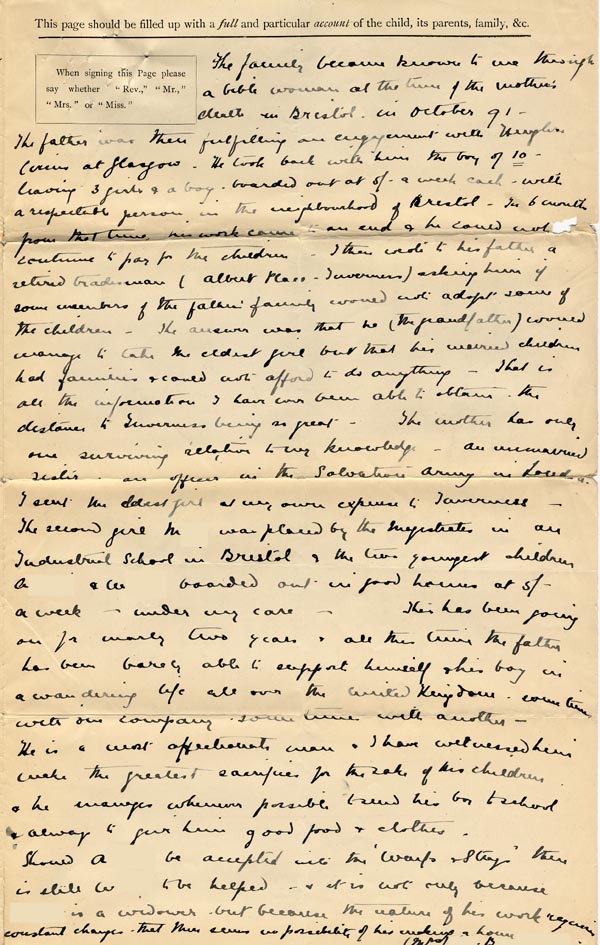 This page should be filled up with a full and particular account of the child, its parents, family, &c.
When signing this Page please
say whether "Rev.," "Mr.,"
"Mrs." or "Miss."
The family became known to me through
a bible woman at the time of the mother's
death in Bristol in October 91 -
The father was then fulfilling an engagement with Hengler's
Circus at Glasgow - He took back with him the boy of 10 -
leaving 3 girls & a boy boarded out at 5/- a week each - with
a respectable person in the neighbourhood of Bristol - In 6 months
from that time, his work came to an end & he could not
continue to pay for the children - I then wrote to his father a
retired tradesman ( Albert Place - Inverness) asking him if
some members of the father's family would not adopt some of
the children - The answer was that he (the grandfather) would
manage to take the eldest girl but that his married children
had families & could not afford to do anything - That is
all the information I have ever been able to obtain - the
distance to Inverness being so great - The mother has only
one surviving relation to my knowledge - an unmarried
sister - an officer in the Salvation Army in London
I sent the eldest girl at my own expense to Inverness -
The second girl M was placed by the Magistrates in an
Industrial School in Bristol & the two youngest children
A & W boarded out in good homes at 5/-
a week - under my care - This has been going
on for nearly two years & all this time the father
has been barely able to support himself & his boy in
a wandering life all over the United Kingdom - sometimes
with one company sometimes with another -
He is a most affectionate man & I have witnessed him
make the greatest sacrifices for the sake of his children
& he manages whenever possible to send his boy to school
& always to give him good food & clothes.
Should A be accepted into the "Waifs & Strays" there
is still W to be helped - & it is not only because
is a widower but because the nature of his work requires
constant changes - that there seems no possibility of his making a home